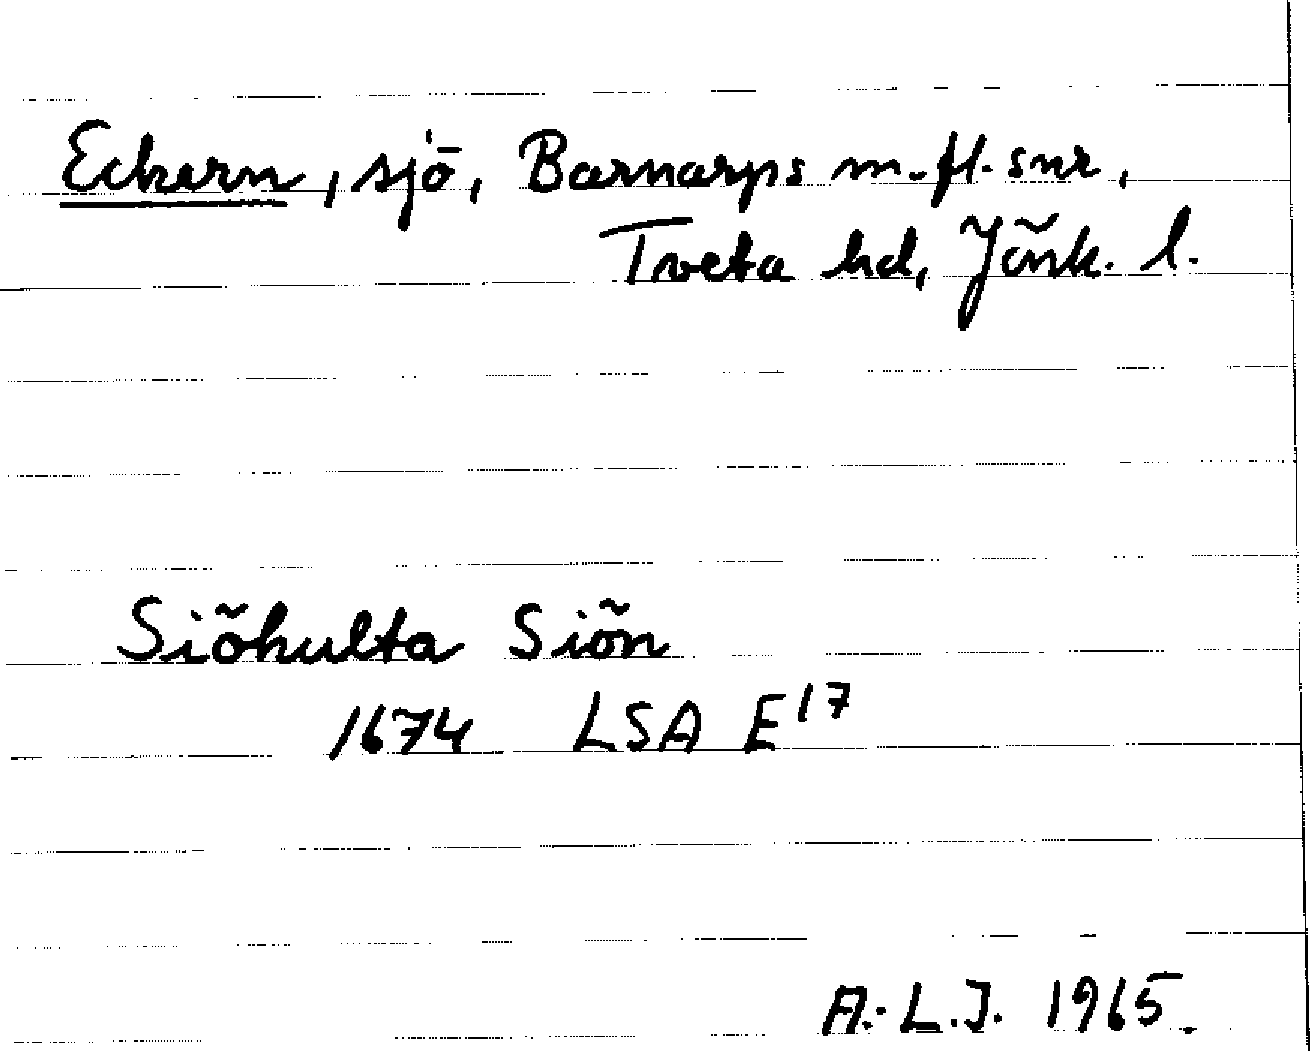 Eckern, sjö, Barnarps m.fl. snr,
Tveta hd, Jönk. l.
Siöhulta Siön
1674 LSA E17
A.-L.J. 1965.